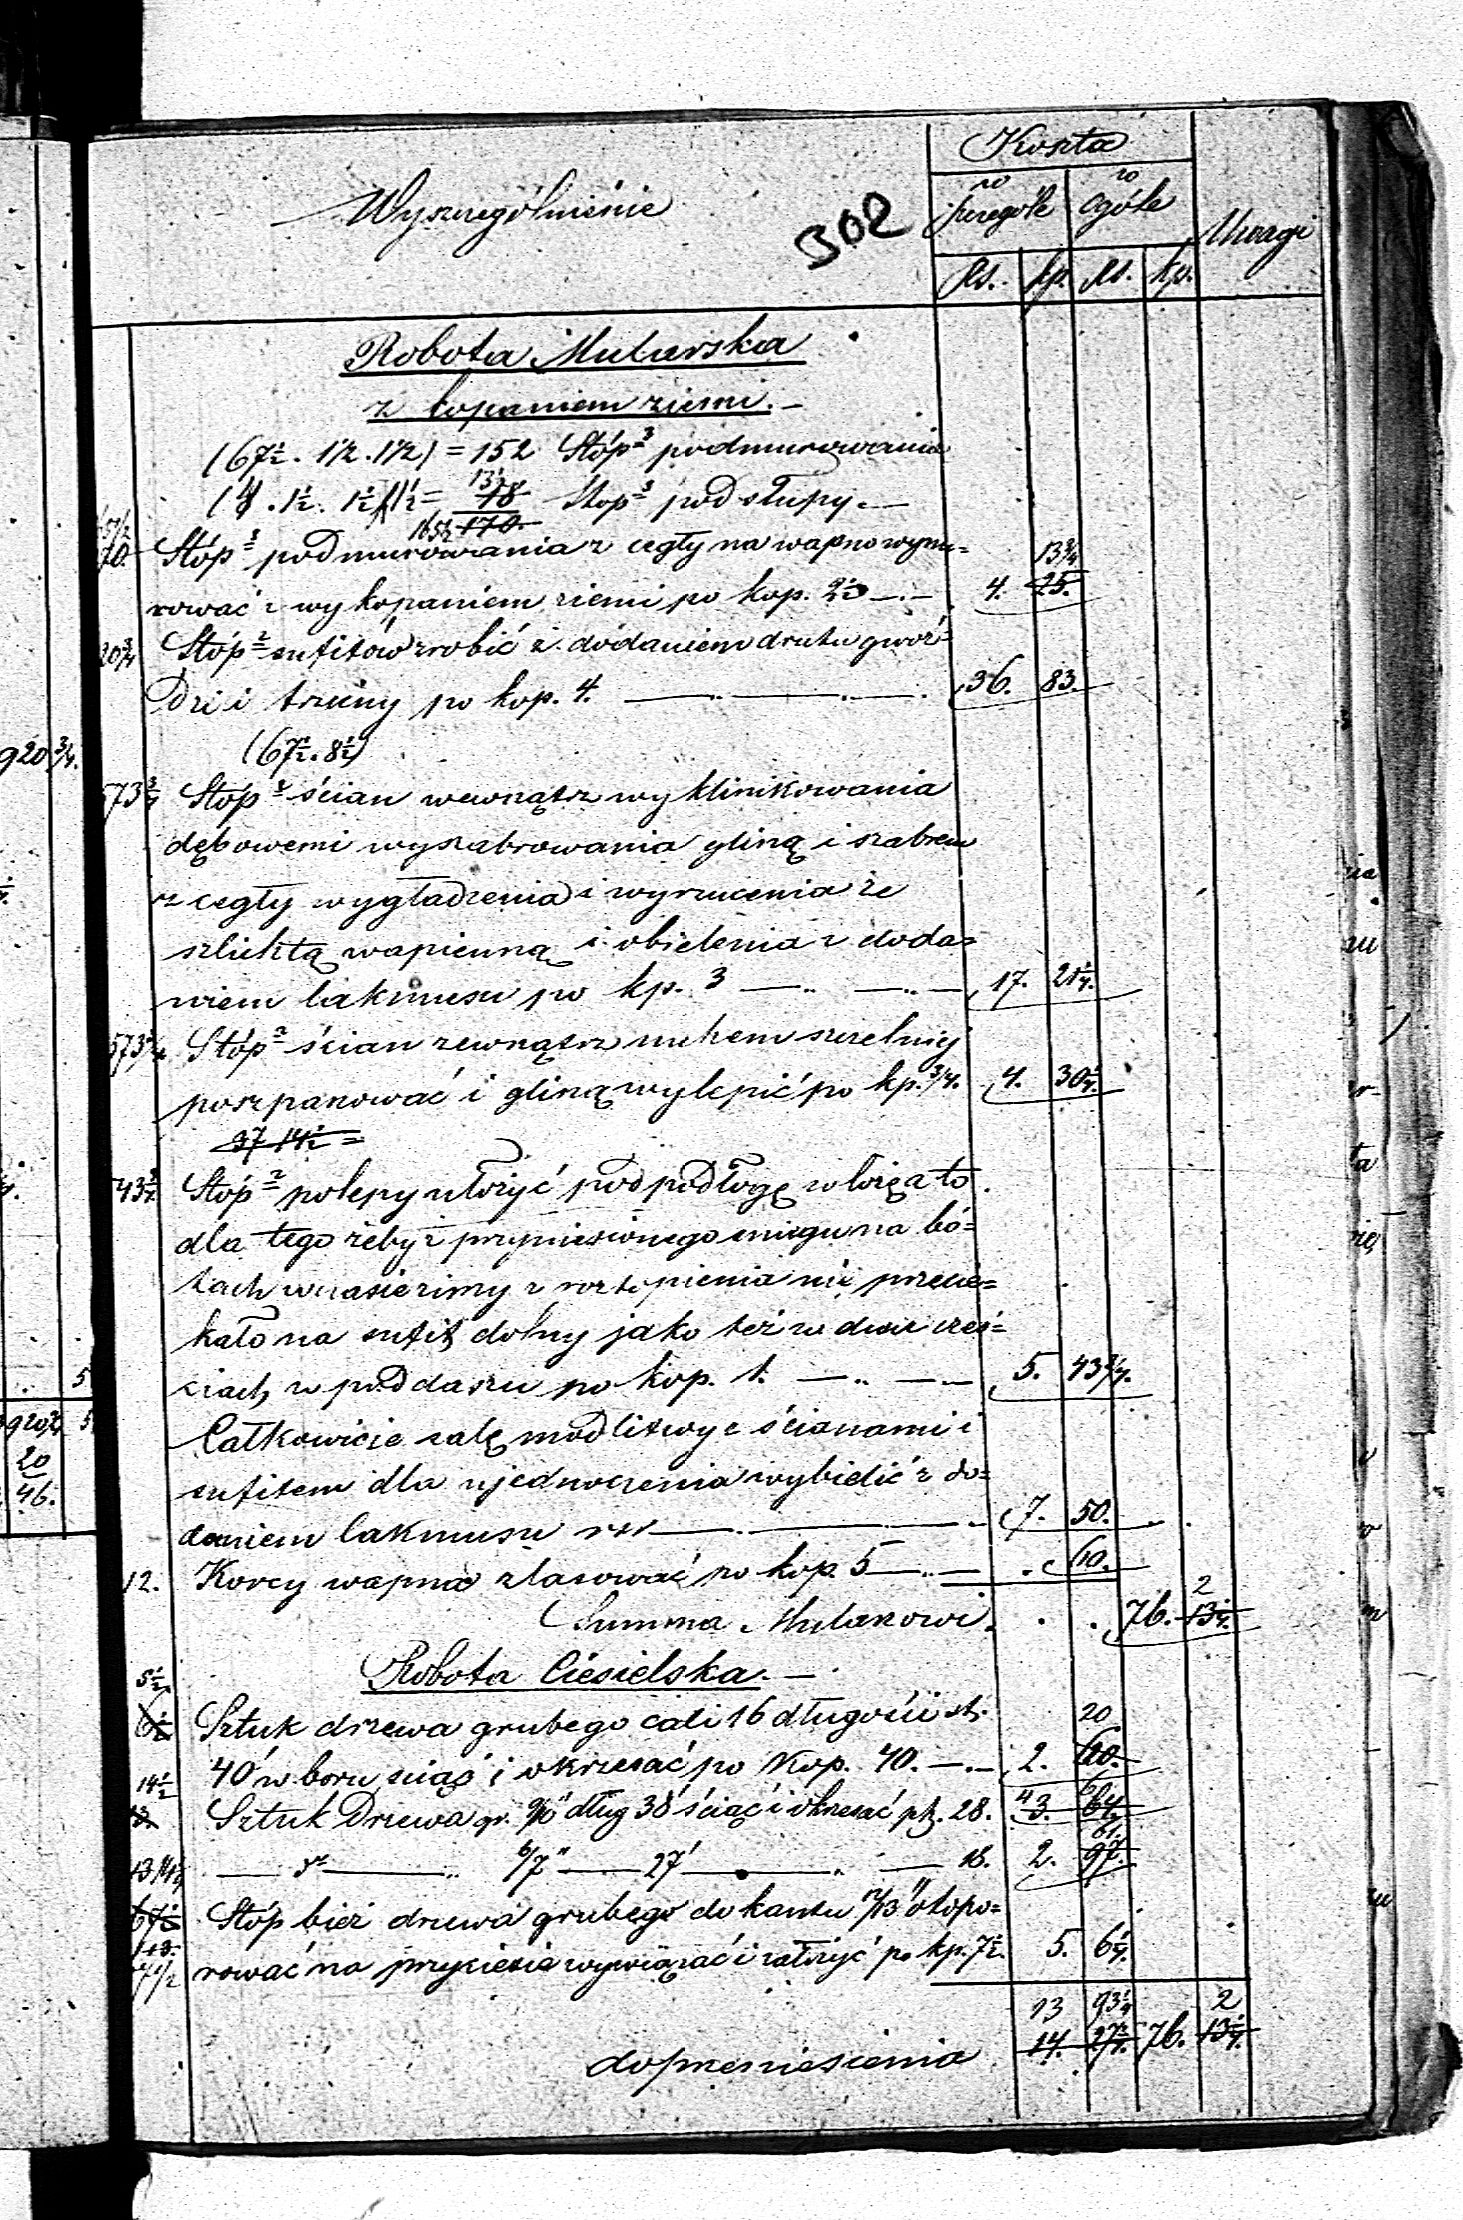 Koszta
Wyszczególnienie
302
w szczególe
w ogóle
Uwagi
Rs. kp. Rs. kp.
Robota Mularska
z kopaniem ziemi.
(67½ . 1½ . 1½) = 152 Stóp³ podmurowania
(4 . 1½ . 1½) 1½ = 13½ 18 Stop³ pod słupy.
165½ 170.
165½ 170. Stóp³ podmurowania z cegły na wapno wymu=
rować z wykopaniem ziemi po kop. 2½ 4. 13¾ 25.
920¾ Stóp² sufitów zrobić z dodaniem drutu gwoź=
dzi i trzciny po kop. 4. 36. 83.
(67½ . 8½)
573¾ Stóp² ścian wewnątrz wyklinikowania
dębowemi wyszabrowania gliną i szabrem
z cegły wygładzenia i wyrzucenia ze
szlichtą wapienną i obielenia z doda=
niem lakmusu po kp. 3 17. 21¼.
573¾ Stóp² ścian zewnątrz mchem szczelniej
poszpanować i gliną wylepić po kp. ¾. 4. 30¼.
37 14½ =
543¾ Stóp² polepy ułożyć pod podłogę w lożą a to
dla tego żeby z przyniesionego śniegu na bó=
tach w czasie zimy z roztopienia nie przecie=
kało na sufit dolny jako też w dwu częś=
ciach w poddaszu po kop. 1. 5. 43¾.
Całkowicie salę modlitwy z ścianami i
sufitem dla ujednoczenia wybielić z do=
daniem lakmusu 7. 50.
12. Korcy wapna zlasować po kop. 5 . 60.
Summa Mularowi . . 76. 2 13¼.
Robota Ciesielska.
5½
6½ Sztuk drzewa grubego cali 16 długości st.
40' w boru ściąć i okrzesać po kop. 40. 2. 20 60.
14½
13 Sztuk Drzewa gr. 9/10" dług 38' ściąć i okrzesać p k. 28. 4 3. 6 64
13 14½ 6/7" 27' 18. 2. 61. 97.
67½ Stóp bież drzewa grubego do kantu 12/13" otopo=
rować na przyciesie wywiązać i założyć po kp. 7½. 5. 6¼.
13 93¼ 2
do przeniesienia 14. 27½. 76. 13¼.
920¾.
5
920¾ 5
20
46.